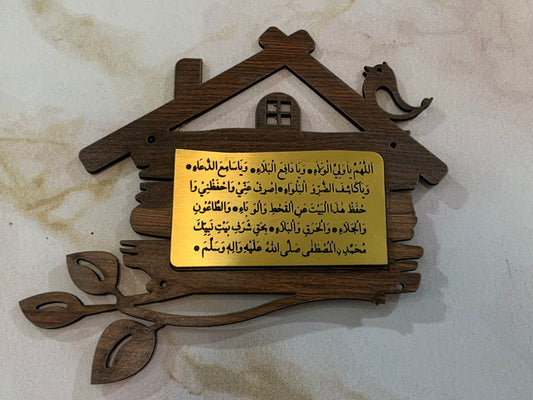 اَللّٰهُمَّ يَا وَلِيَّ الْوَلَاءِ • وَيَا دَافِعَ الْبَلَاءِ • وَيَا سَامِعَ الدُّعَاءِ •
وَيَا كَاشِفَ الضُّرِّ وَ الْبَلْوَاءِ • اِصْرِفْ عَنِّيْ وَاحْفَظْنِيْ وَا
حْفَظْ هٰذَا الْبَيْتَ عَنِ الْقَحْطِ وَالْوَبَاءِ • وَالطَّاعُوْنِ
وَالْجَلَاءِ • وَالْحَرَقِ وَالْبَلَاءِ • بِحَقِّ شَرَفِ بَيْتِ نَبِيِّكَ
مُحَمَّدِ نِ الْمُصْطَفٰى صَلَّى اللهُ عَلَيْهِ وَاٰلِهٖ وَسَلَّمَ •